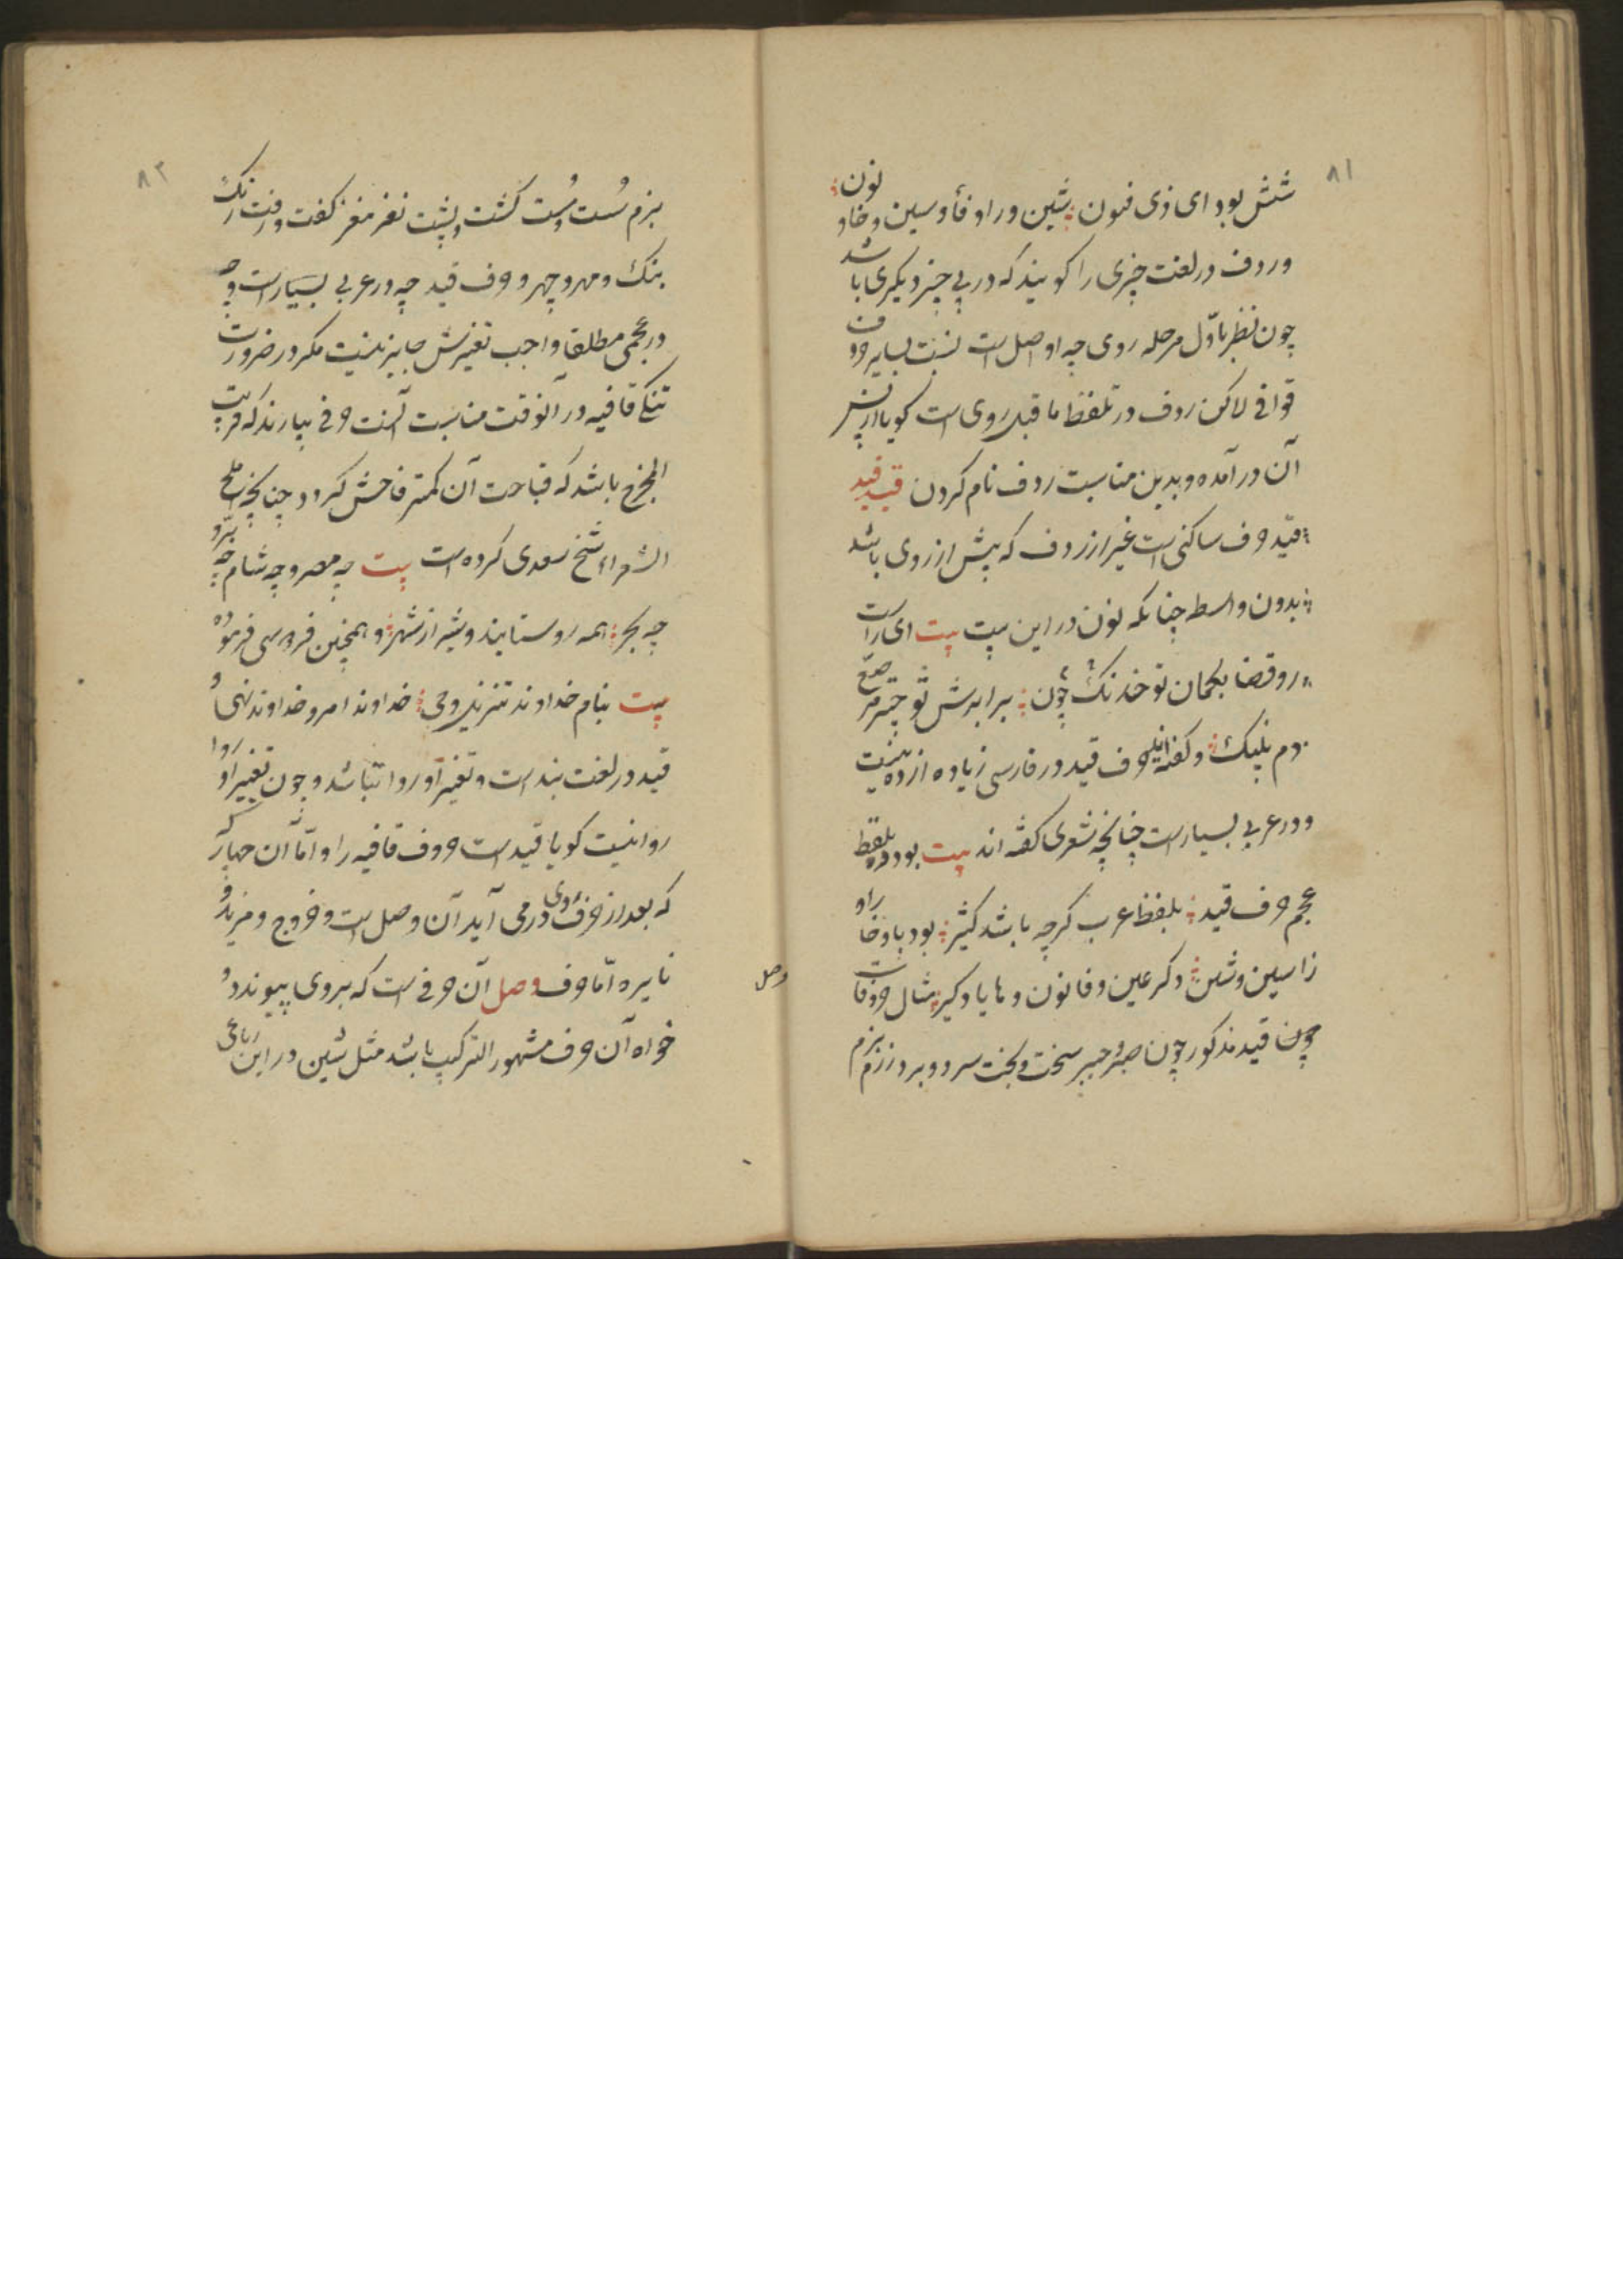 ۸۱
شش بود ای ذی فنون شین و را و فا و سین و خا و نون
و ردف در لغت چیزی را کویند که در پی چیز دیکری باشد
چون نظر باول مرحله روی چه او اصل است نسبت بسایر حروف
قوافی لاکن ردف در تلفظ ما قبل روی است کویا از پس
آن در آمده و بدین مناسبت ردف نام کردن قید قید
قید حرف ساکنی است غیر از ردف که پیش از روی باشد
بدون واسطه چنانکه نون در این بیت بیت ای راست
رو قضا بکمان تو خدنک چون برابرش تو چتر مرصع
دم پلنک و کفته‌اند حرف قید در فارسی زیاده از ده نیست
و در عربی بسیار است چنانچه شعری کفته اند بیت بود ده بلفظ
عجم حرف قید بلفظ عرب کرچه باشد کثیر بود با و خا را و
زا سین و شین دکر عین و فا نون و ها یاد کیر مثال حروفات
چون قید مذکور چون صبر و جبر سخت و بخت سرد و برد رزم بزم
۸۲
بزم سست و شست کشت و پشت نغز مغز کفت و رفت رنک
بنک و مهر و چهر و حرف قید چه در عربی بسیار است و چه
در عجمی مطلقا واجب تغیرش جایز نیست مکر در ضرورت
تنکی قافیه در آنوقت مناسبت آنست حرفی بیارند که قریب
المخرج باشد که قباحت آن کمتر فاحش کردد چنانچه املح
الشعراء شیخ سعدی کرده است بیت چه مصر و چه شام چه برو
چه بحر همه روستایند و شیراز شهر و همچنین فردوسی فرموده
بیت بنام خداوند تنزیل وحی خداوند امر و خداوند نهی و
قید در لغت بند است و تغیر او روا نباشد و چون تغییر او روا
روا نیست کویا قید است حروف قافیه را و اما آن چهار که
که بعد از حرف روی در می آید آن وصل است و خروج و مزید و
نایره اما حرف وصل آن حرفی است که بروی پیوندد و
وصل
خواه آن حرف مشهور الترکیب باشد مثل شین در این رباعی